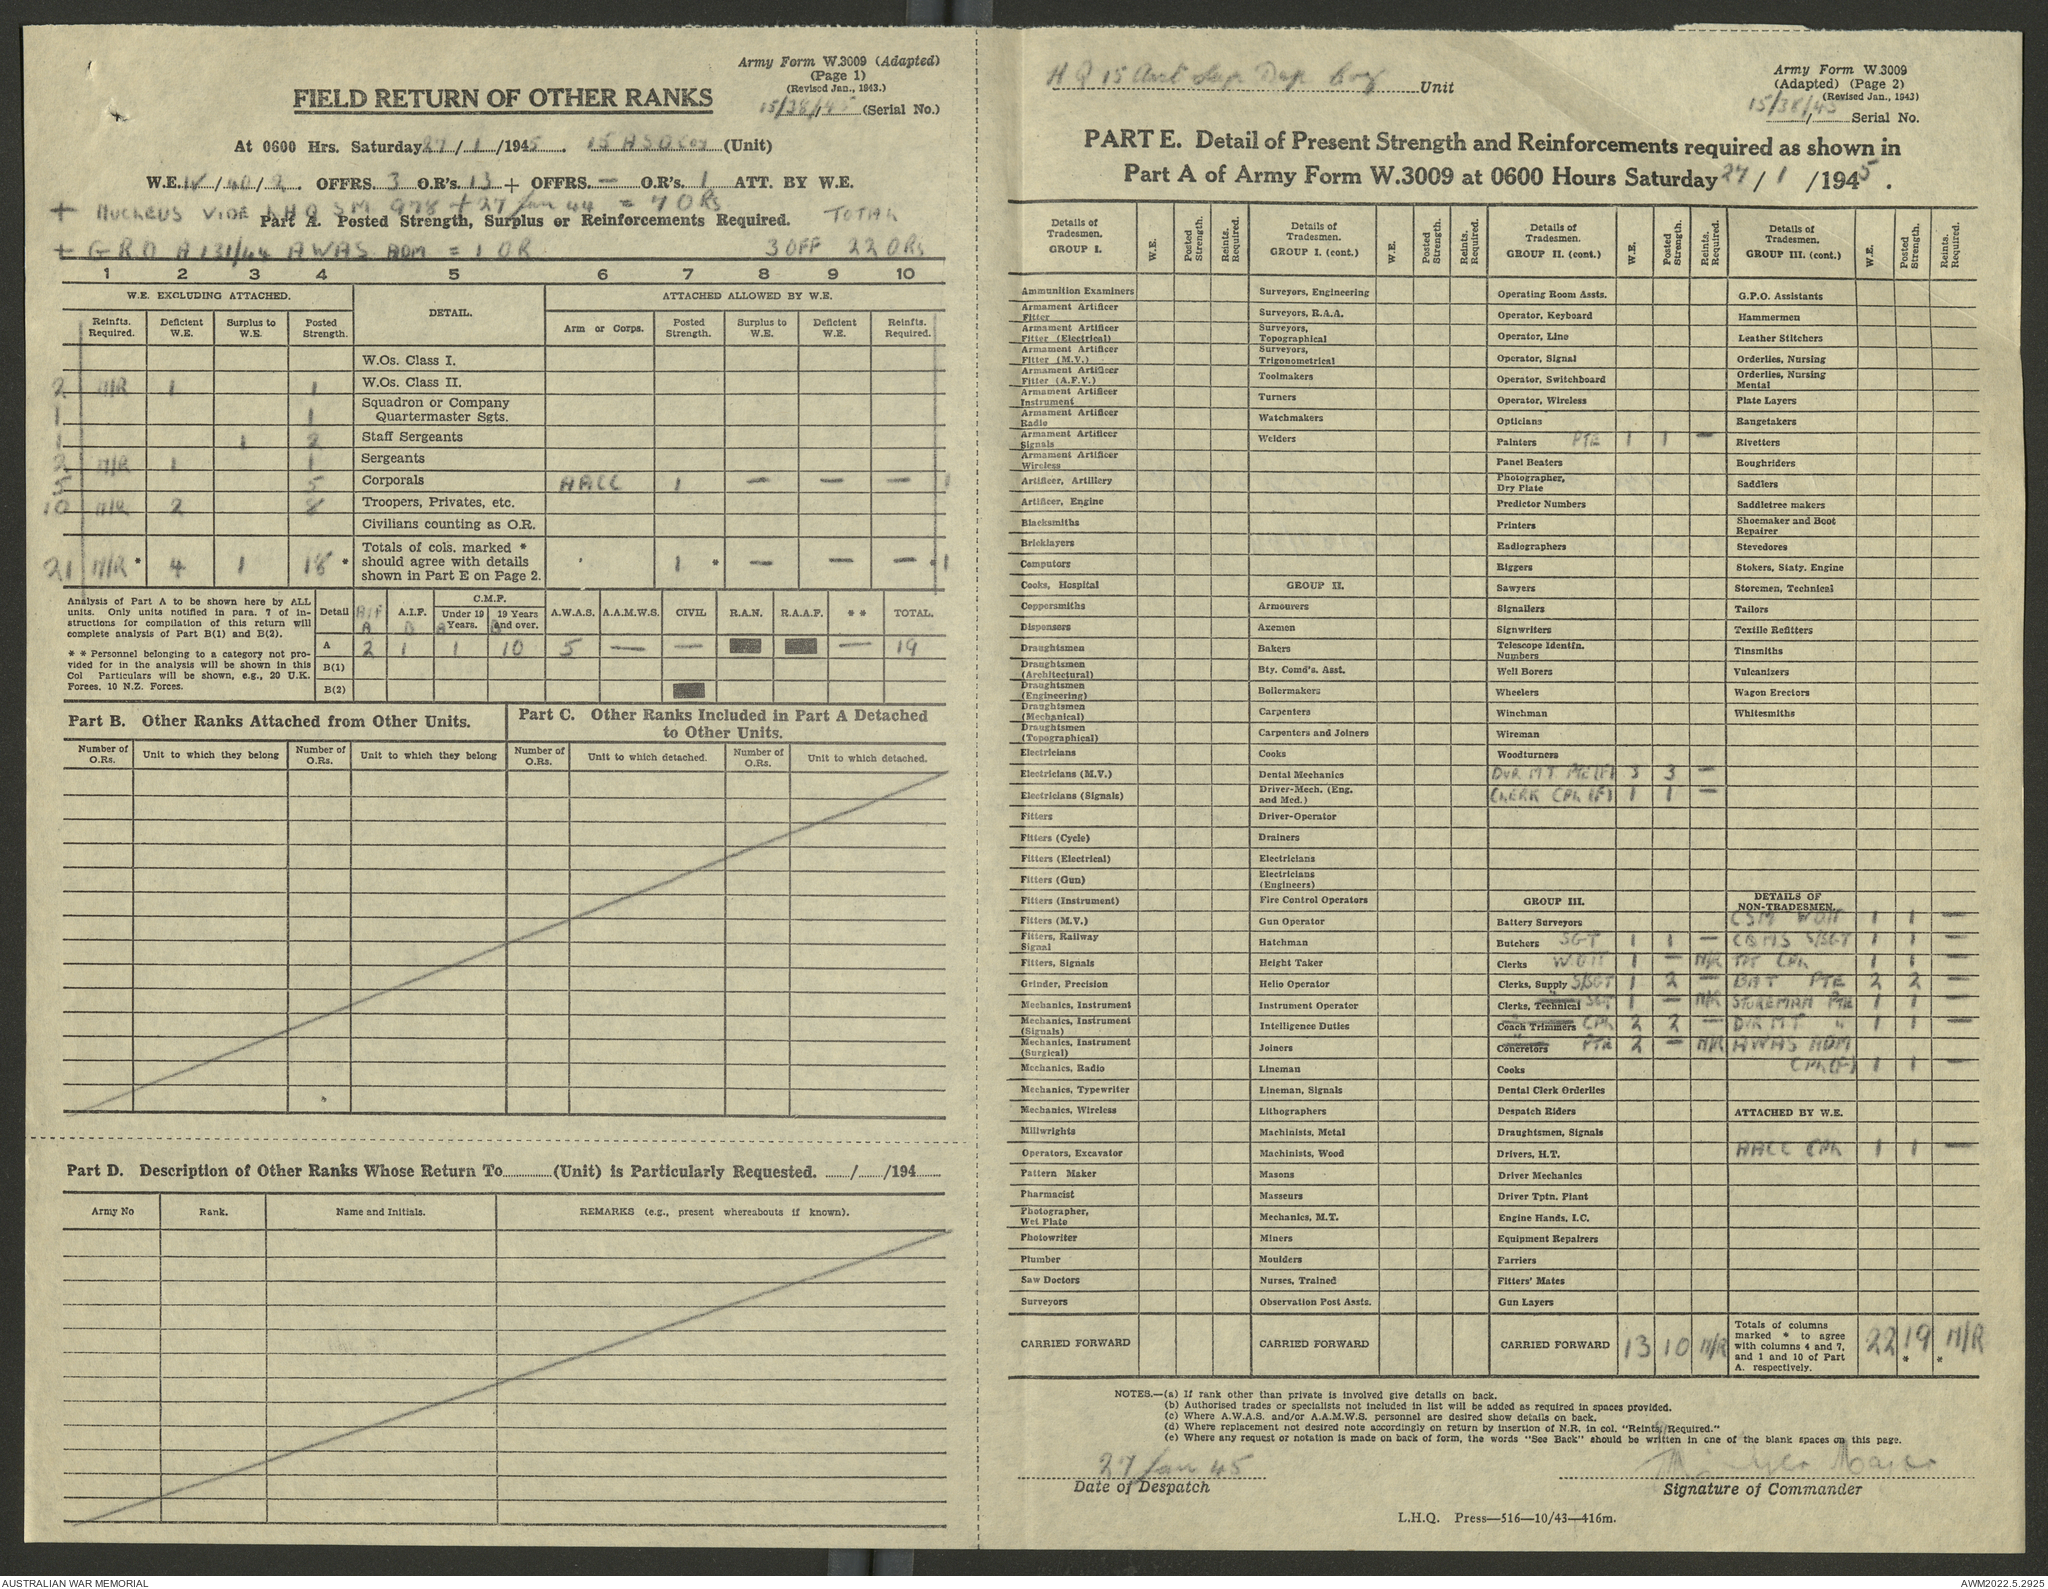 Army Form W.3009 (Adapted)
(Page 1)
(Revised Jan., 1943.)
15/38/45 (Serial No.)
FIELD RETURN OF OTHER RANKS
At 0600 Hrs. Saturday 27/1/1945. 15 ASD Coy (Unit)
W.E. IV/40/2. OFFRS. 3 O.R's. 13 + OFFRS. — O.R's. 1 ATT. BY W.E.
+ NUCLEUS VIDE LHQ SM 978 + 27 Jan 44 = 7 ORs
Part A. Posted Strength, Surplus or Reinforcements Required. TOTAL
+ GRO A 131/44 AWAS ADM = 1 OR 3 OFF 22 ORs
1 2 3 4 5 6 7 8 9 10
W.E. EXCLUDING ATTACHED. DETAIL. ATTACHED ALLOWED BY W.E.
Reinfts. Required. Deficient W.E. Surplus to W.E. Posted Strength. Arm or Corps. Posted Strength. Surplus to W.E. Deficient W.E. Reinfts. Required.
W.Os. Class I.
2 N/R 1 1 W.Os. Class II.
1 1 Squadron or Company Quartermaster Sgts.
1 1 2 Staff Sergeants
2 N/R 1 1 Sergeants
5 5 Corporals AACC 1 — — — 1
10 N/R 2 8 Troopers, Privates, etc.
Civilians counting as O.R.
21 N/R * 4 1 18 * Totals of cols. marked * should agree with details shown in Part E on Page 2. 1 * — — — * 1
Analysis of Part A to be shown here by ALL units. Only units notified in para. 7 of instructions for compilation of this return will complete analysis of Part B(1) and B(2).
* * Personnel belonging to a category not provided for in the analysis will be shown in this Col Particulars will be shown, e.g., 20 U.K. Forces, 10 N.Z. Forces.
Detail A.I.F. C.M.F. Under 19 Years. 19 Years and over. A.W.A.S. A.A.M.W.S. CIVIL R.A.N. R.A.A.F. * * TOTAL.
A 2 1 1 10 5 — — — 19
B(1)
B(2)
Part B. Other Ranks Attached from Other Units.
Part C. Other Ranks Included in Part A Detached to Other Units.
Number of O.Rs. Unit to which they belong Number of O.Rs. Unit to which they belong Number of O.Rs. Unit to which detached. Number of O.Rs. Unit to which detached.
Part D. Description of Other Ranks Whose Return To (Unit) is Particularly Requested. / /194
Army No Rank. Name and Initials. REMARKS (e.g., present whereabouts if known).
HQ 15 Aust Sup Dep Coy Unit
Army Form W.3009
(Adapted) (Page 2)
(Revised Jan., 1943)
15/38/45 Serial No.
PART E. Detail of Present Strength and Reinforcements required as shown in
Part A of Army Form W.3009 at 0600 Hours Saturday 27/1/1945.
Details of Tradesmen. GROUP I. W.E. Posted Strength. Reints. Required.
Ammunition Examiners
Armament Artificer Fitter
Armament Artificer Fitter (Electrical)
Armament Artificer Fitter (M.V.)
Armament Artificer Fitter (A.F.V.)
Armament Artificer Instrument
Armament Artificer Radio
Armament Artificer Signals
Armament Artificer Wireless
Artificer, Artillery
Artificer, Engine
Blacksmiths
Bricklayers
Computors
Cooks, Hospital
Coppersmiths
Dispensers
Draughtsmen
Draughtsmen (Architectural)
Draughtsmen (Engineering)
Draughtsmen (Mechanical)
Draughtsmen (Topographical)
Electricians
Electricians (M.V.)
Electricians (Signals)
Fitters
Fitters (Cycle)
Fitters (Electrical)
Fitters (Gun)
Fitters (Instrument)
Fitters (M.V.)
Fitters, Railway Signal
Fitters, Signals
Grinder, Precision
Mechanics, Instrument
Mechanics, Instrument (Signals)
Mechanics, Instrument (Surgical)
Mechanics, Radio
Mechanics, Typewriter
Mechanics, Wireless
Millwrights
Operators, Excavator
Pattern Maker
Pharmacist
Photographer, Wet Plate
Photowriter
Plumber
Saw Doctors
Surveyors
CARRIED FORWARD
Details of Tradesmen. GROUP I. (cont.) W.E. Posted Strength. Reints. Required.
Surveyors, Engineering
Surveyors, R.A.A.
Surveyors, Topographical
Surveyors, Trigonometrical
Toolmakers
Turners
Watchmakers
Welders
GROUP II.
Armourers
Axemen
Bakers
Bty. Comd's. Asst.
Boilermakers
Carpenters
Carpenters and Joiners
Cooks
Dental Mechanics
Driver-Mech. (Eng. and Med.)
Driver-Operator
Drainers
Electricians
Electricians (Engineers)
Fire Control Operators
Gun Operator
Hatchman
Height Taker
Helio Operator
Instrument Operator
Intelligence Duties
Joiners
Lineman
Lineman, Signals
Lithographers
Machinists, Metal
Machinists, Wood
Masons
Masseurs
Mechanics, M.T.
Miners
Moulders
Nurses, Trained
Observation Post Assts.
CARRIED FORWARD
Details of Tradesmen. GROUP II. (cont.) W.E. Posted Strength. Reints. Required.
Operating Room Assts.
Operator, Keyboard
Operator, Line
Operator, Signal
Operator, Switchboard
Operator, Wireless
Opticians
Painters PTE 1 1 —
Panel Beaters
Photographer, Dry Plate
Predictor Numbers
Printers
Radiographers
Riggers
Sawyers
Signallers
Signwriters
Telescope Identfn. Numbers
Well Borers
Wheelers
Winchman
Wireman
Woodturners
DVR MT PTE (F) 3 3 —
CLERK CPL (F) 1 1 —
GROUP III.
Battery Surveyors
Butchers SGT 1 1 —
Clerks WOII 1 — N/R
Clerks, Supply S/SGT 1 2 —
Clerks, Technical SGT 1 — N/R
Coach Trimmers CPL 2 2 —
Concretors PTE 2 — N/R
Cooks
Dental Clerk Orderlies
Despatch Riders
Draughtsmen, Signals
Drivers, H.T.
Driver Mechanics
Driver Tptn. Plant
Engine Hands, I.C.
Equipment Repairers
Farriers
Fitters' Mates
Gun Layers
CARRIED FORWARD 13 10 N/R
Details of Tradesmen. GROUP III. (cont.) W.E. Posted Strength. Reints. Required.
G.P.O. Assistants
Hammermen
Leather Stitchers
Orderlies, Nursing
Orderlies, Nursing Mental
Plate Layers
Rangetakers
Rivetters
Roughriders
Saddlers
Saddletree makers
Shoemaker and Boot Repairer
Stevedores
Stokers, Staty. Engine
Storemen, Technical
Tailors
Textile Refitters
Tinsmiths
Vulcanizers
Wagon Erectors
Whitesmiths
DETAILS OF NON-TRADESMEN.
CSM WOII 1 1 —
CQMS S/SGT 1 1 —
TPT CPL 1 1 —
BAT PTE 2 2 —
STOREMAN PTE 1 1 —
DVR MT " 1 1 —
AWAS ADM
CPL (F) 1 1 —
ATTACHED BY W.E.
AACC CPL 1 1 —
Totals of columns marked * to agree with columns 4 and 7, and 1 and 10 of Part A. respectively. 22 19 * * N/R
NOTES.—(a) If rank other than private is involved give details on back.
(b) Authorised trades or specialists not included in list will be added as required in spaces provided.
(c) Where A.W.A.S. and/or A.A.M.W.S. personnel are desired show details on back.
(d) Where replacement not desired note accordingly on return by insertion of N.R. in col. "Reints. Required."
(e) Where any request or notation is made on back of form, the words "See Back" should be written in one of the blank spaces on this page.
27 Jan 45
Date of Despatch
Major
Signature of Commander
L.H.Q. Press—516—10/43—416m.
AUSTRALIAN WAR MEMORIAL
AWM2022.5.2925